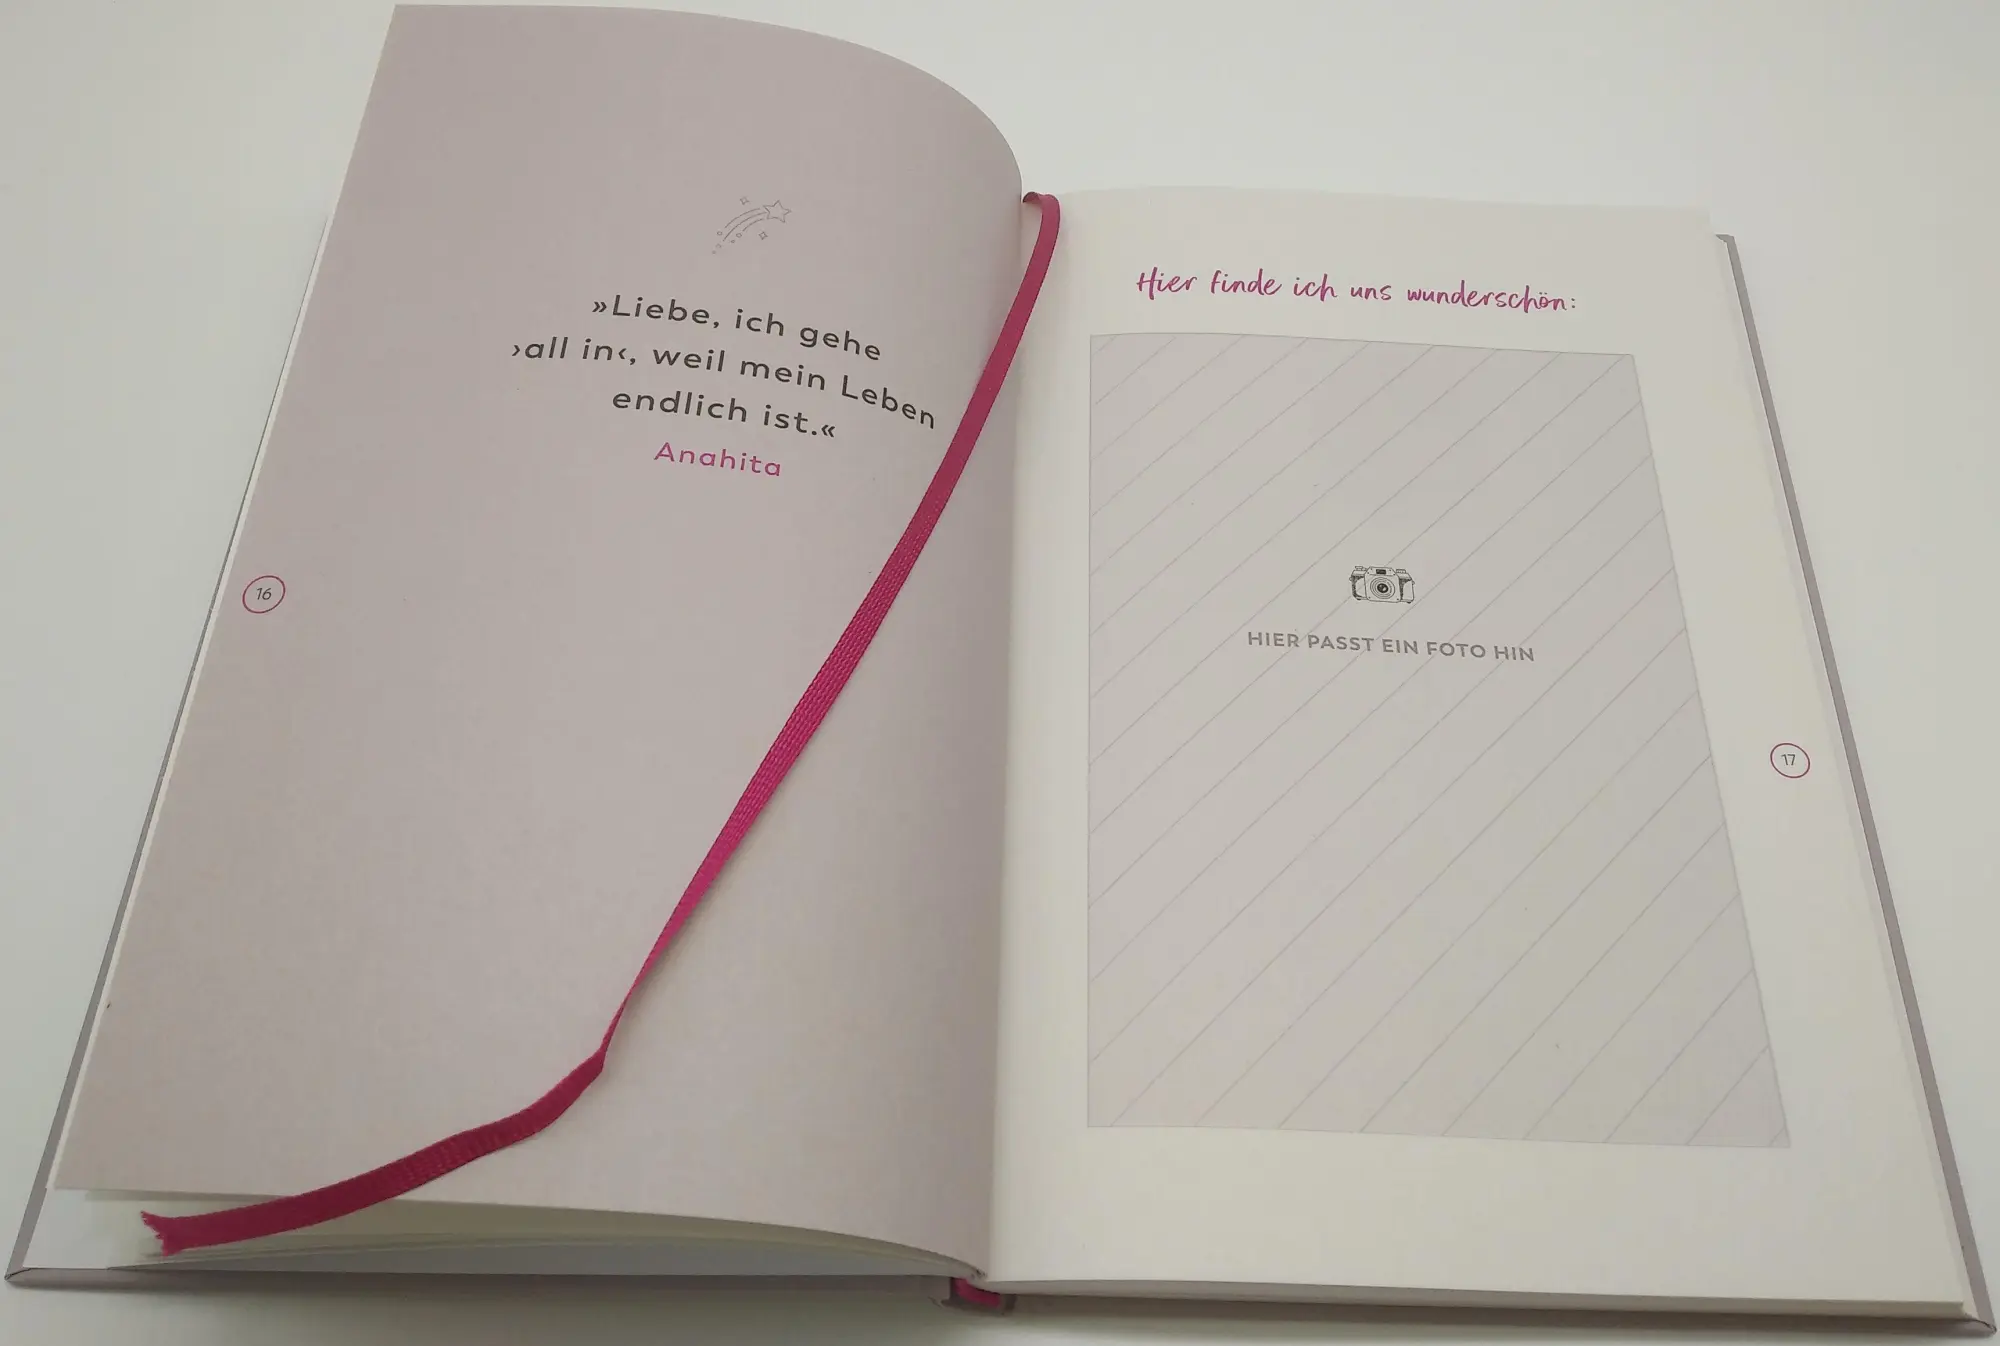 »Liebe, ich gehe
›all in‹, weil mein Leben
endlich ist.«
Anahita
16
Hier finde ich uns wunderschön:
HIER PASST EIN FOTO HIN
17